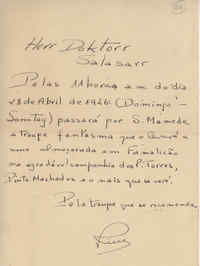 Herr Doktorr
Salasarr
Pelas 11 horas a.m. do dia
28 de Abril de 1946 (Domingo -
Sonntag) passará por S. Mamede
a troupe fantasma que
uma almoçarada em Famalicão
na agradável companhia das P. Torres,
Pinto Machados e o mais que se verá.
Pela troupe que se recomenda,
Luis